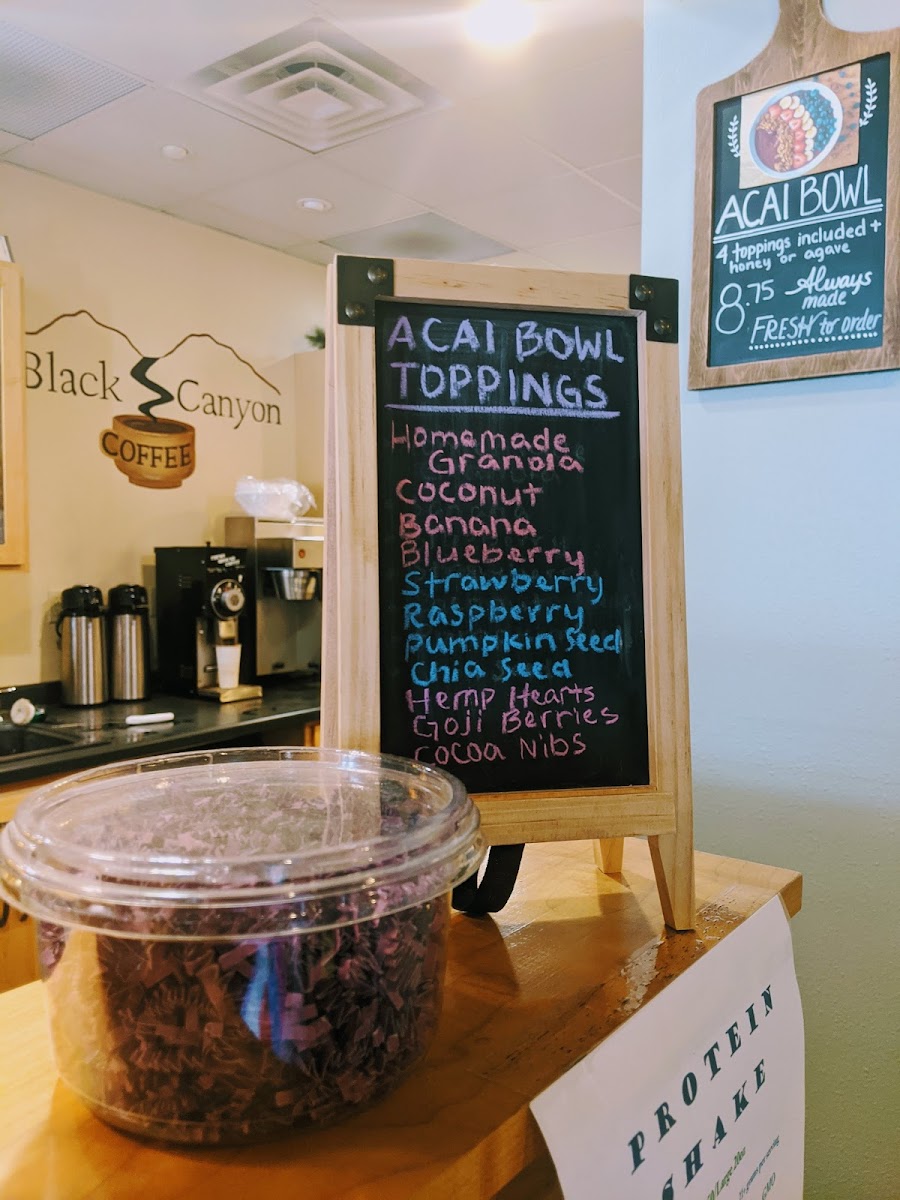 Black Canyon
COFFEE
ACAI BOWL
TOPPINGS
Homemade
Granola
Coconut
Banana
Blueberry
Strawberry
Raspberry
Pumpkin Seed
Chia Seed
Hemp Hearts
Goji Berries
Cocoa Nibs
ACAI BOWL
4 toppings included +
honey or agave
8.75 Always
made
FRESH to order
PROTEIN
SHAKE
Large 20oz
grams per serving
GMO